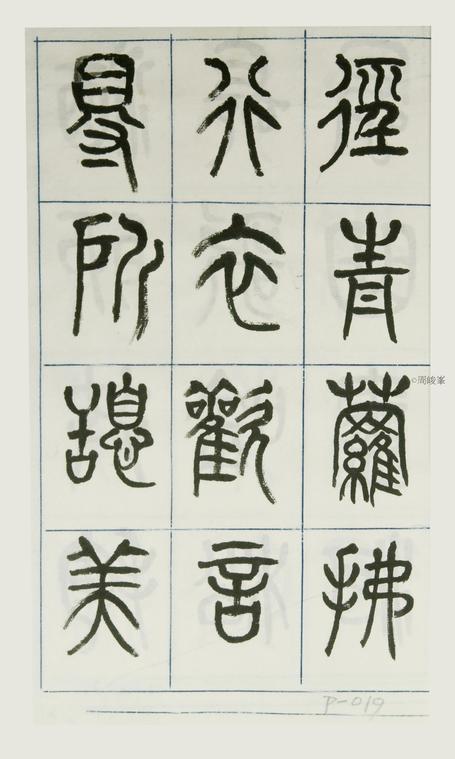 徑青蘿拂
行衣歡言
得所憩美
©周峻峯
P-019